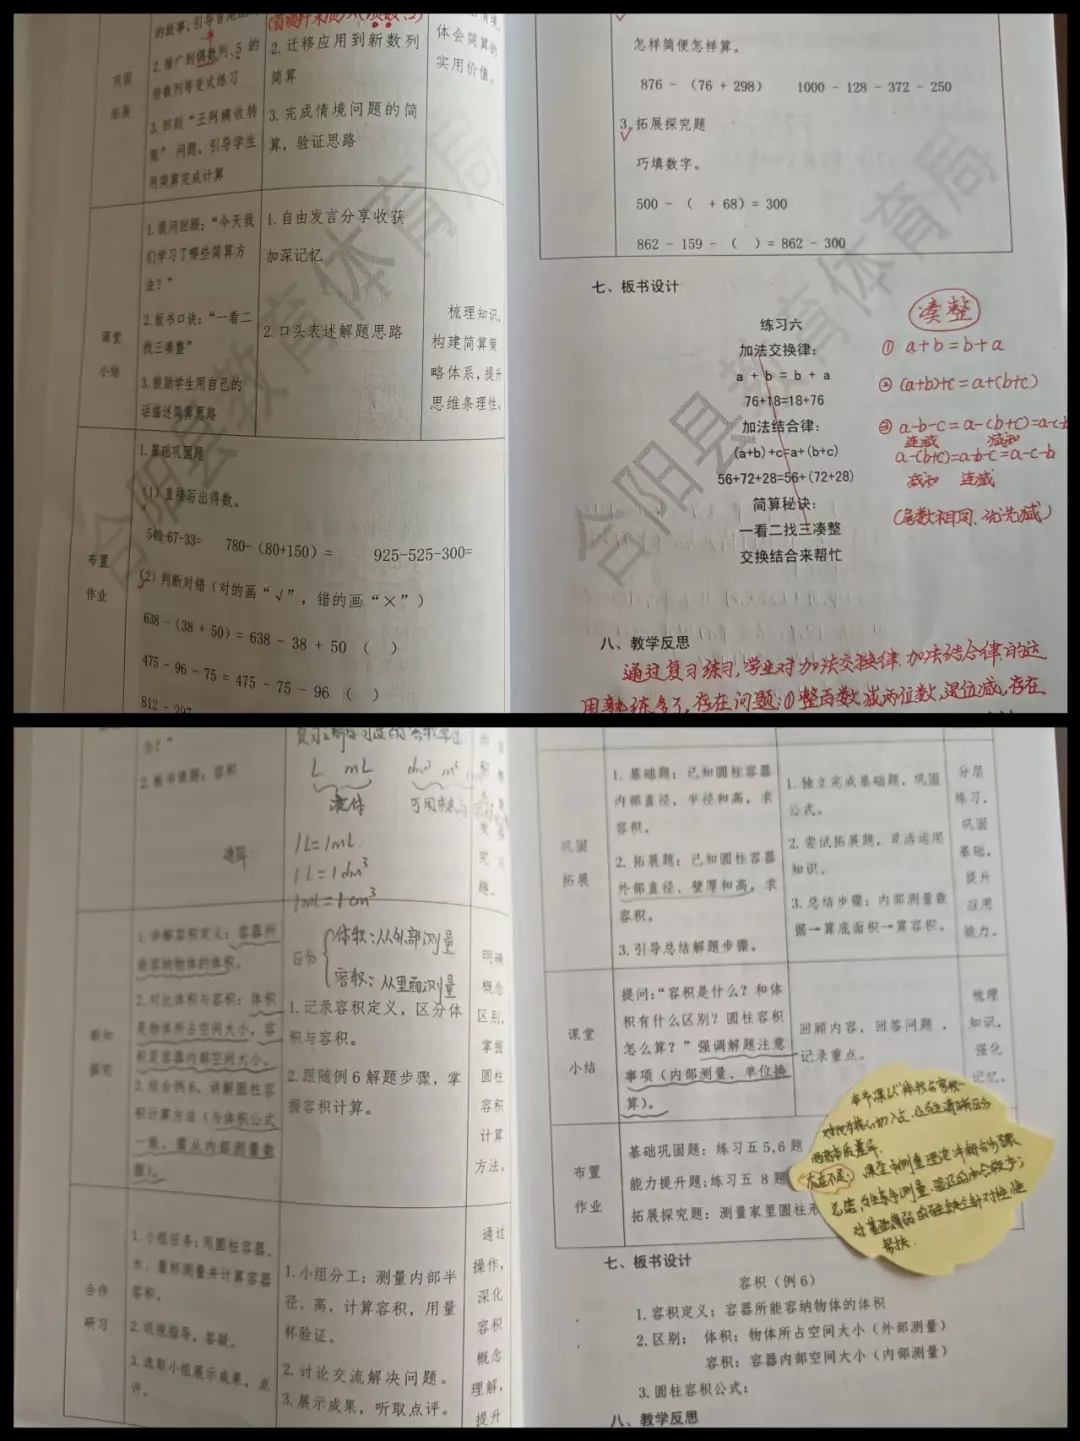 的故事，引导
2.推广到偶数列、5 的
倍数列等变式练习
3.回到“王阿姨收转
账”问题，引导学生
用简算完成计算
巩固
拓展
2.迁移应用到新数列
简算
3.完成情境问题的简
算，验证思路
体会简算的
实用价值。
课堂
小结
1.提问回顾：“今天我
们学习了哪些简算方
法？”
2.板书口诀：“一看二
找三凑整”
3.鼓励学生用自己的
话描述简算思路
1.自由发言分享收获
加深记忆
2.口头表述解题思路
梳理知识，
构建简算策
略体系，提升
思维条理性。
布置
作业
1.基础巩固题
(1)直接写出得数。
540-67-33= 780-(80+150)= 925-525-300=
(2)判断对错（对的画“√”，错的画“×”）
638-(38+50)=638-38+50（ ）
475-96-75=475-75-96（ ）
812-297
怎样简便怎样算。
876-(76+298) 1000-128-372-250
3.拓展探究题
巧填数字。
500-( +68)=300
862-159-( )=862-300
七、板书设计
练习六
加法交换律：
a+b=b+a
76+18=18+76
加法结合律：
(a+b)+c=a+(b+c)
56+72+28=56+(72+28)
简算秘诀：
一看二找三凑整
交换结合来帮忙
凑整
① a+b=b+a
② (a+b)+c=a+(b+c)
③ a-b-c=a-(b+c)=a-c-b
连减 减和
a-(b+c)=a-b-c=a-c-b
减和 连减
(尾数相同，先减)
八、教学反思
通过复习练习，学生对加法交换律、加法结合律的运
用熟练多了，存在问题：①整百数减两位数，退位减，存在
合阳县教育体育局
合阳县教育体育局
2.板书课题：容积
L mL dm³ m³
液体
1L=1mL
1L=1dm³
1mL=1cm³
新知
探究
1.讲解容积定义：容器所
能容纳物体的体积。
2.对比体积与容积：体积
是物体所占空间大小，容
积是容器内部空间大小。
3.结合例6，讲解圆柱容
积计算方法（与体积公式
一致，需从内部测量数
据）。
区分
体积：从外部测量
容积：从里面测量
1.记录容积定义，区分体
积与容积。
2.跟随例 6 解题步骤，掌
握容积计算。
明确
概念
区别，
掌握
圆柱
容积
计算
方法。
合作
研习
1.小组任务：用圆柱容器、
水、量杯测量并计算容器
容积。
2.巡视指导，答疑。
3.选取小组展示成果，点
评。
1.小组分工：测量内部半
径、高，计算容积，用量
杯验证。
2.讨论交流解决问题。
3.展示成果，听取点评。
通过
操作，
深化
容积
概念
理解，
提升
巩固
拓展
1.基础题：已知圆柱容器
内部直径，半径和高，求
容积。
2.拓展题：已知圆柱容器
外部直径、壁厚和高，求
容积。
3.引导总结解题步骤。
1.独立完成基础题，巩固
公式。
2.尝试拓展题，灵活运用
知识。
3.总结步骤：内部测量数
据→算底面积→算容积。
分层
练习，
巩固
基础，
提升
应用
能力。
课堂
小结
提问：“容积是什么？和体
积有什么区别？圆柱容积
怎么算？”强调解题注意
事项（内部测量、单位换
算）。
回顾内容，回答问题，
记录重点。
梳理
知识，
强化
记忆。
布置
作业
基础巩固题：练习五 5,6 题
能力提升题：练习五 8 题
拓展探究题：测量家里圆柱形
七、板书设计
容积（例 6）
1.容积定义：容器所能容纳物体的体积
2.区别： 体积：物体所占空间大小（外部测量）
容积：容器内部空间大小（内部测量）
3.圆柱容积公式：
八、教学反思